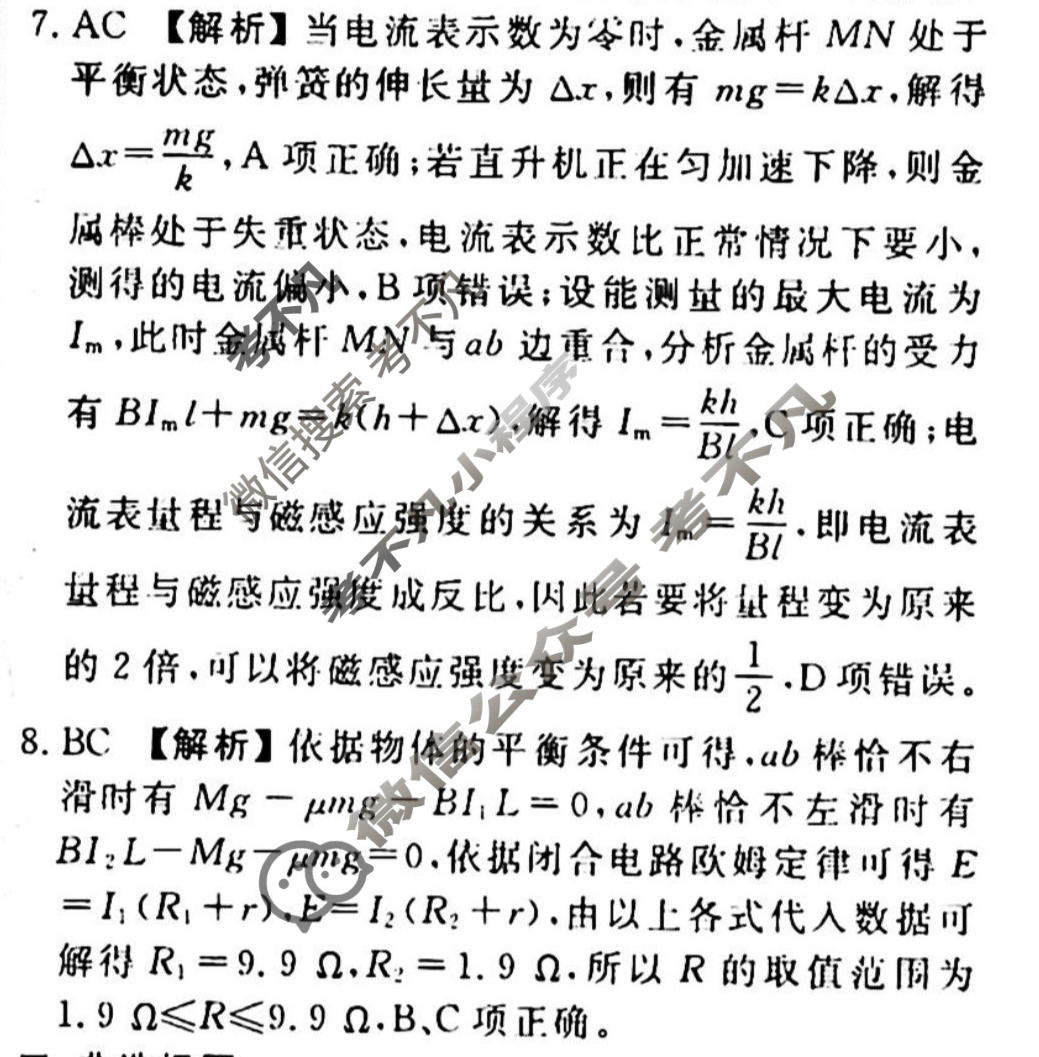 7. AC 【解析】当电流表示数为零时,金属杆 MN 处于
平衡状态,弹簧的伸长量为 Δx,则有 mg=kΔx,解得
Δx=mg/k,A 项正确;若直升机正在匀加速下降,则金
属棒处于失重状态,电流表示数比正常情况下要小,
测得的电流偏小,B 项错误;设能测量的最大电流为
Iₘ,此时金属杆 MN 与 ab 边重合,分析金属杆的受力
有 BIₘl+mg=k(h+Δx),解得 Iₘ=kh/Bl,C 项正确;电
流表量程与磁感应强度的关系为 Iₘ=kh/Bl,即电流表
量程与磁感应强度成反比,因此若要将量程变为原来
的 2 倍,可以将磁感应强度变为原来的1/2,D 项错误。
8. BC 【解析】依据物体的平衡条件可得,ab 棒恰不右
滑时有 Mg-μmg-BI₁L=0,ab 棒恰不左滑时有
BI₂L-Mg-μmg=0,依据闭合电路欧姆定律可得 E
=I₁(R₁+r),E=I₂(R₂+r),由以上各式代入数据可
解得 R₁=9.9 Ω,R₂=1.9 Ω,所以 R 的取值范围为
1.9 Ω≤R≤9.9 Ω,B、C 项正确。
考不凡
微信搜索 考不凡
考不凡小程序
微信公众号 考不凡